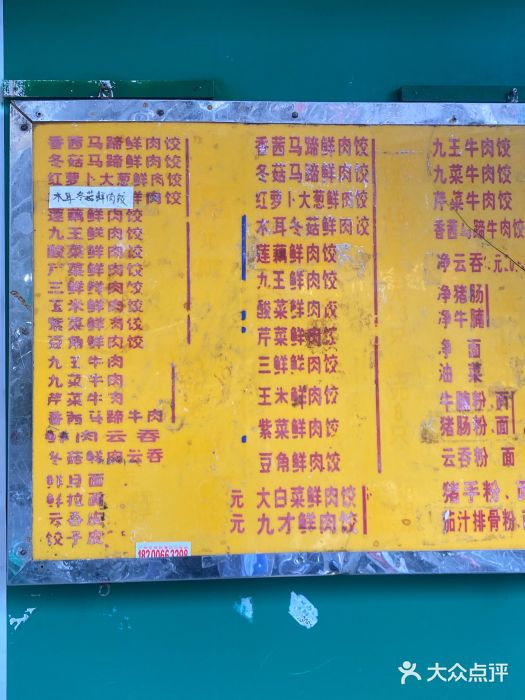 香茜马蹄鲜肉饺
冬菇马蹄鲜肉饺
红萝卜大葱鲜肉饺
木耳冬菇鲜肉饺
鲜肉饺
莲藕鲜肉饺
九王鲜肉饺
酸菜鲜肉饺
芹菜鲜肉饺
三鲜鲜肉饺
玉米鲜肉饺
紫菜鲜肉饺
豆角鲜肉饺
九王牛肉
九菜牛肉
芹菜牛肉
香茜马蹄牛肉
鲜肉云吞
冬菇鲜肉云吞
面
拉面
云吞皮
饺子皮
18200662298
香茜马蹄鲜肉饺
冬菇马蹄鲜肉饺
红萝卜大葱鲜肉饺
水耳冬菇鲜肉饺
莲藕鲜肉饺
九王鲜肉饺
酸菜鲜肉饺
芹菜鲜肉饺
三鲜鲜肉饺
玉米鲜肉饺
紫菜鲜肉饺
豆角鲜肉饺
元 大白菜鲜肉饺
元 九才鲜肉饺
九王牛肉饺
九菜牛肉饺
芹菜牛肉饺
香茜马蹄牛肉饺
净云吞.元
净猪肠
净牛腩
净面
油菜
牛腩粉、面
猪肠粉、面
云吞粉 面
猪手粉、面
茄汁排骨粉
大众点评